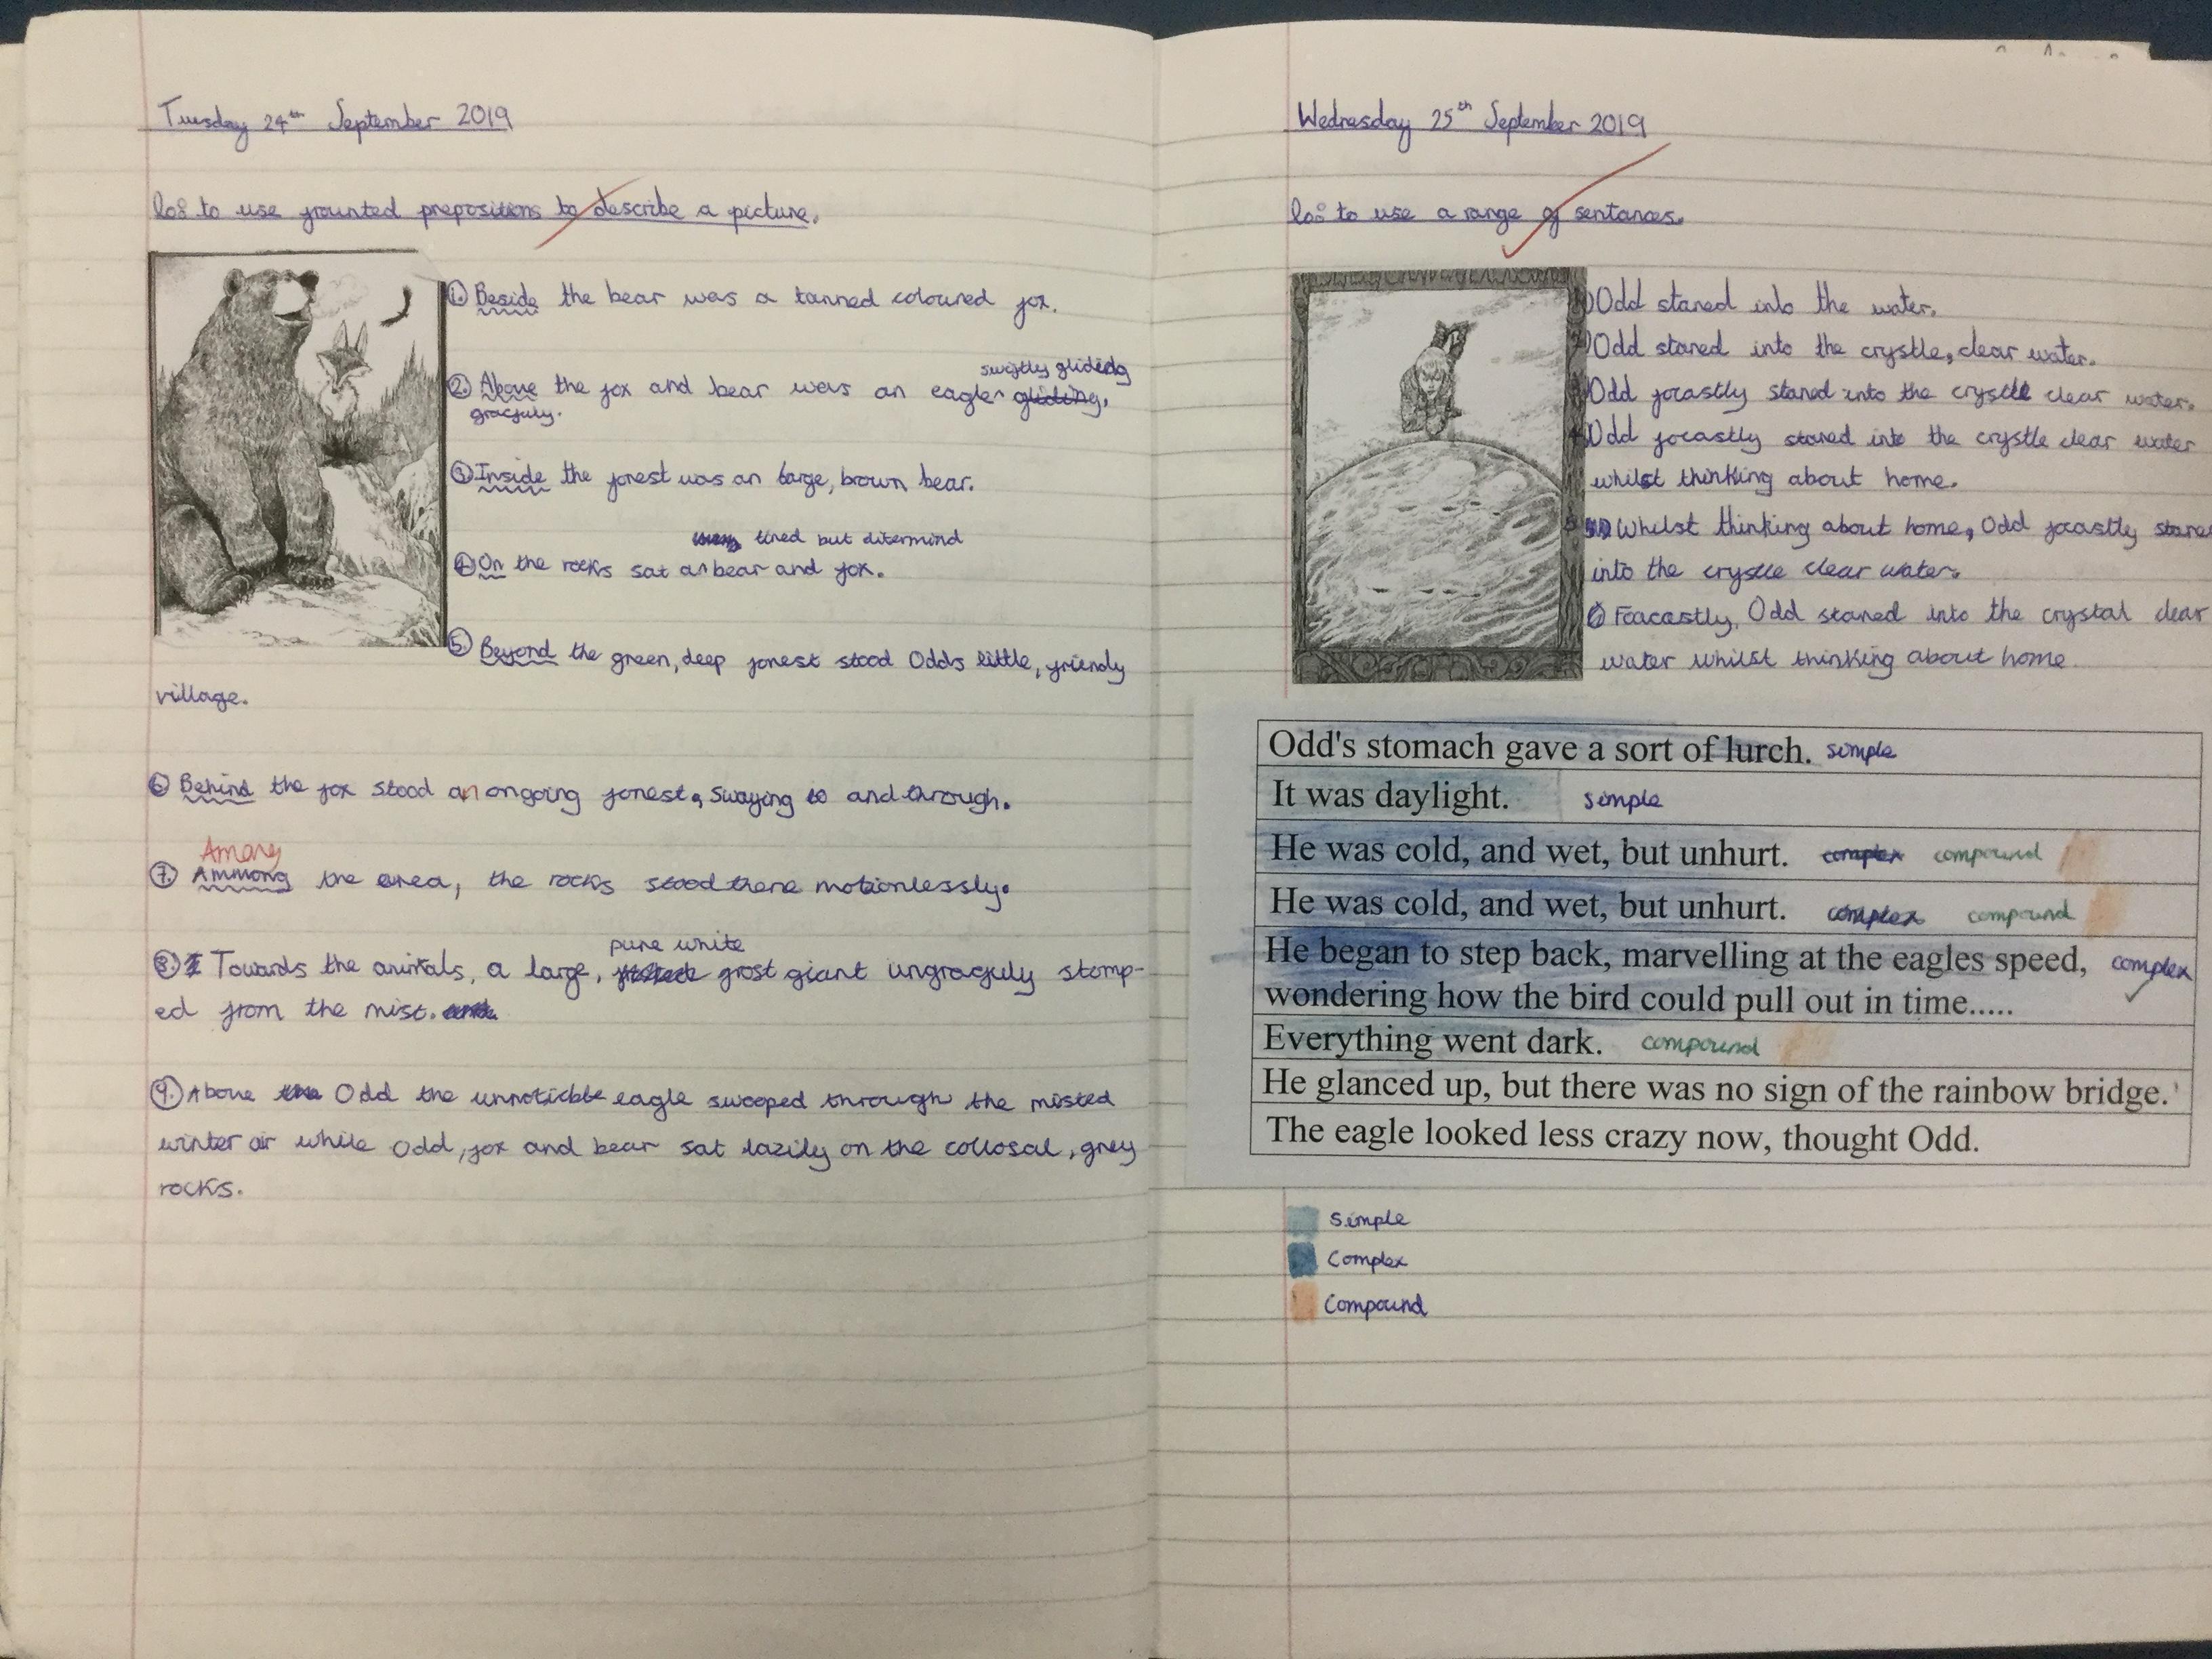 Tuesday 24th September 2019
lo: to use frounted prepositions to describe a picture.
1. Beside the bear was a tanned coloured fox.
swiftly glideidg
2. Above the fox and bear wers an eagle^ gliding.
gracfuly.
3. Inside the forest was an large, brown bear.
tired but ditermind
4. On the rocks sat a^bear and fox.
5. Beyond the green, deep forest stood Odds little, friendly
village.
6. Behind the fox stood an ongoing forest, swaying to and through.
Among
7. Ammong the area, the rocks stood there motionlessly.
pure white
8. Towards the animals, a large, frost giant ungracfuly stomp-
ed from the mist.
9. Above the Odd the unnoticble eagle swooped through the misted
winter air while Odd, fox and bear sat lazily on the collosal, grey
rocks.
Wednesday 25th September 2019
lo: to use a range of sentances.
Odd stared into the water.
Odd stared into the crystle, clear water.
Odd focastly stared into the crystle clear water.
Odd focastly stared into the crystle clear water
whilst thinking about home.
Whilst thinking about home, Odd focastly stare
into the crystle clear water.
6 Foacastly, Odd stared into the crystal clear
water whilst thinking about home
Odd's stomach gave a sort of lurch. simple
It was daylight. simple
He was cold, and wet, but unhurt. complex compound
He was cold, and wet, but unhurt. complex compound
He began to step back, marvelling at the eagles speed, complex
wondering how the bird could pull out in time.....
Everything went dark. compound
He glanced up, but there was no sign of the rainbow bridge.
The eagle looked less crazy now, thought Odd.
simple
Complex
Compound